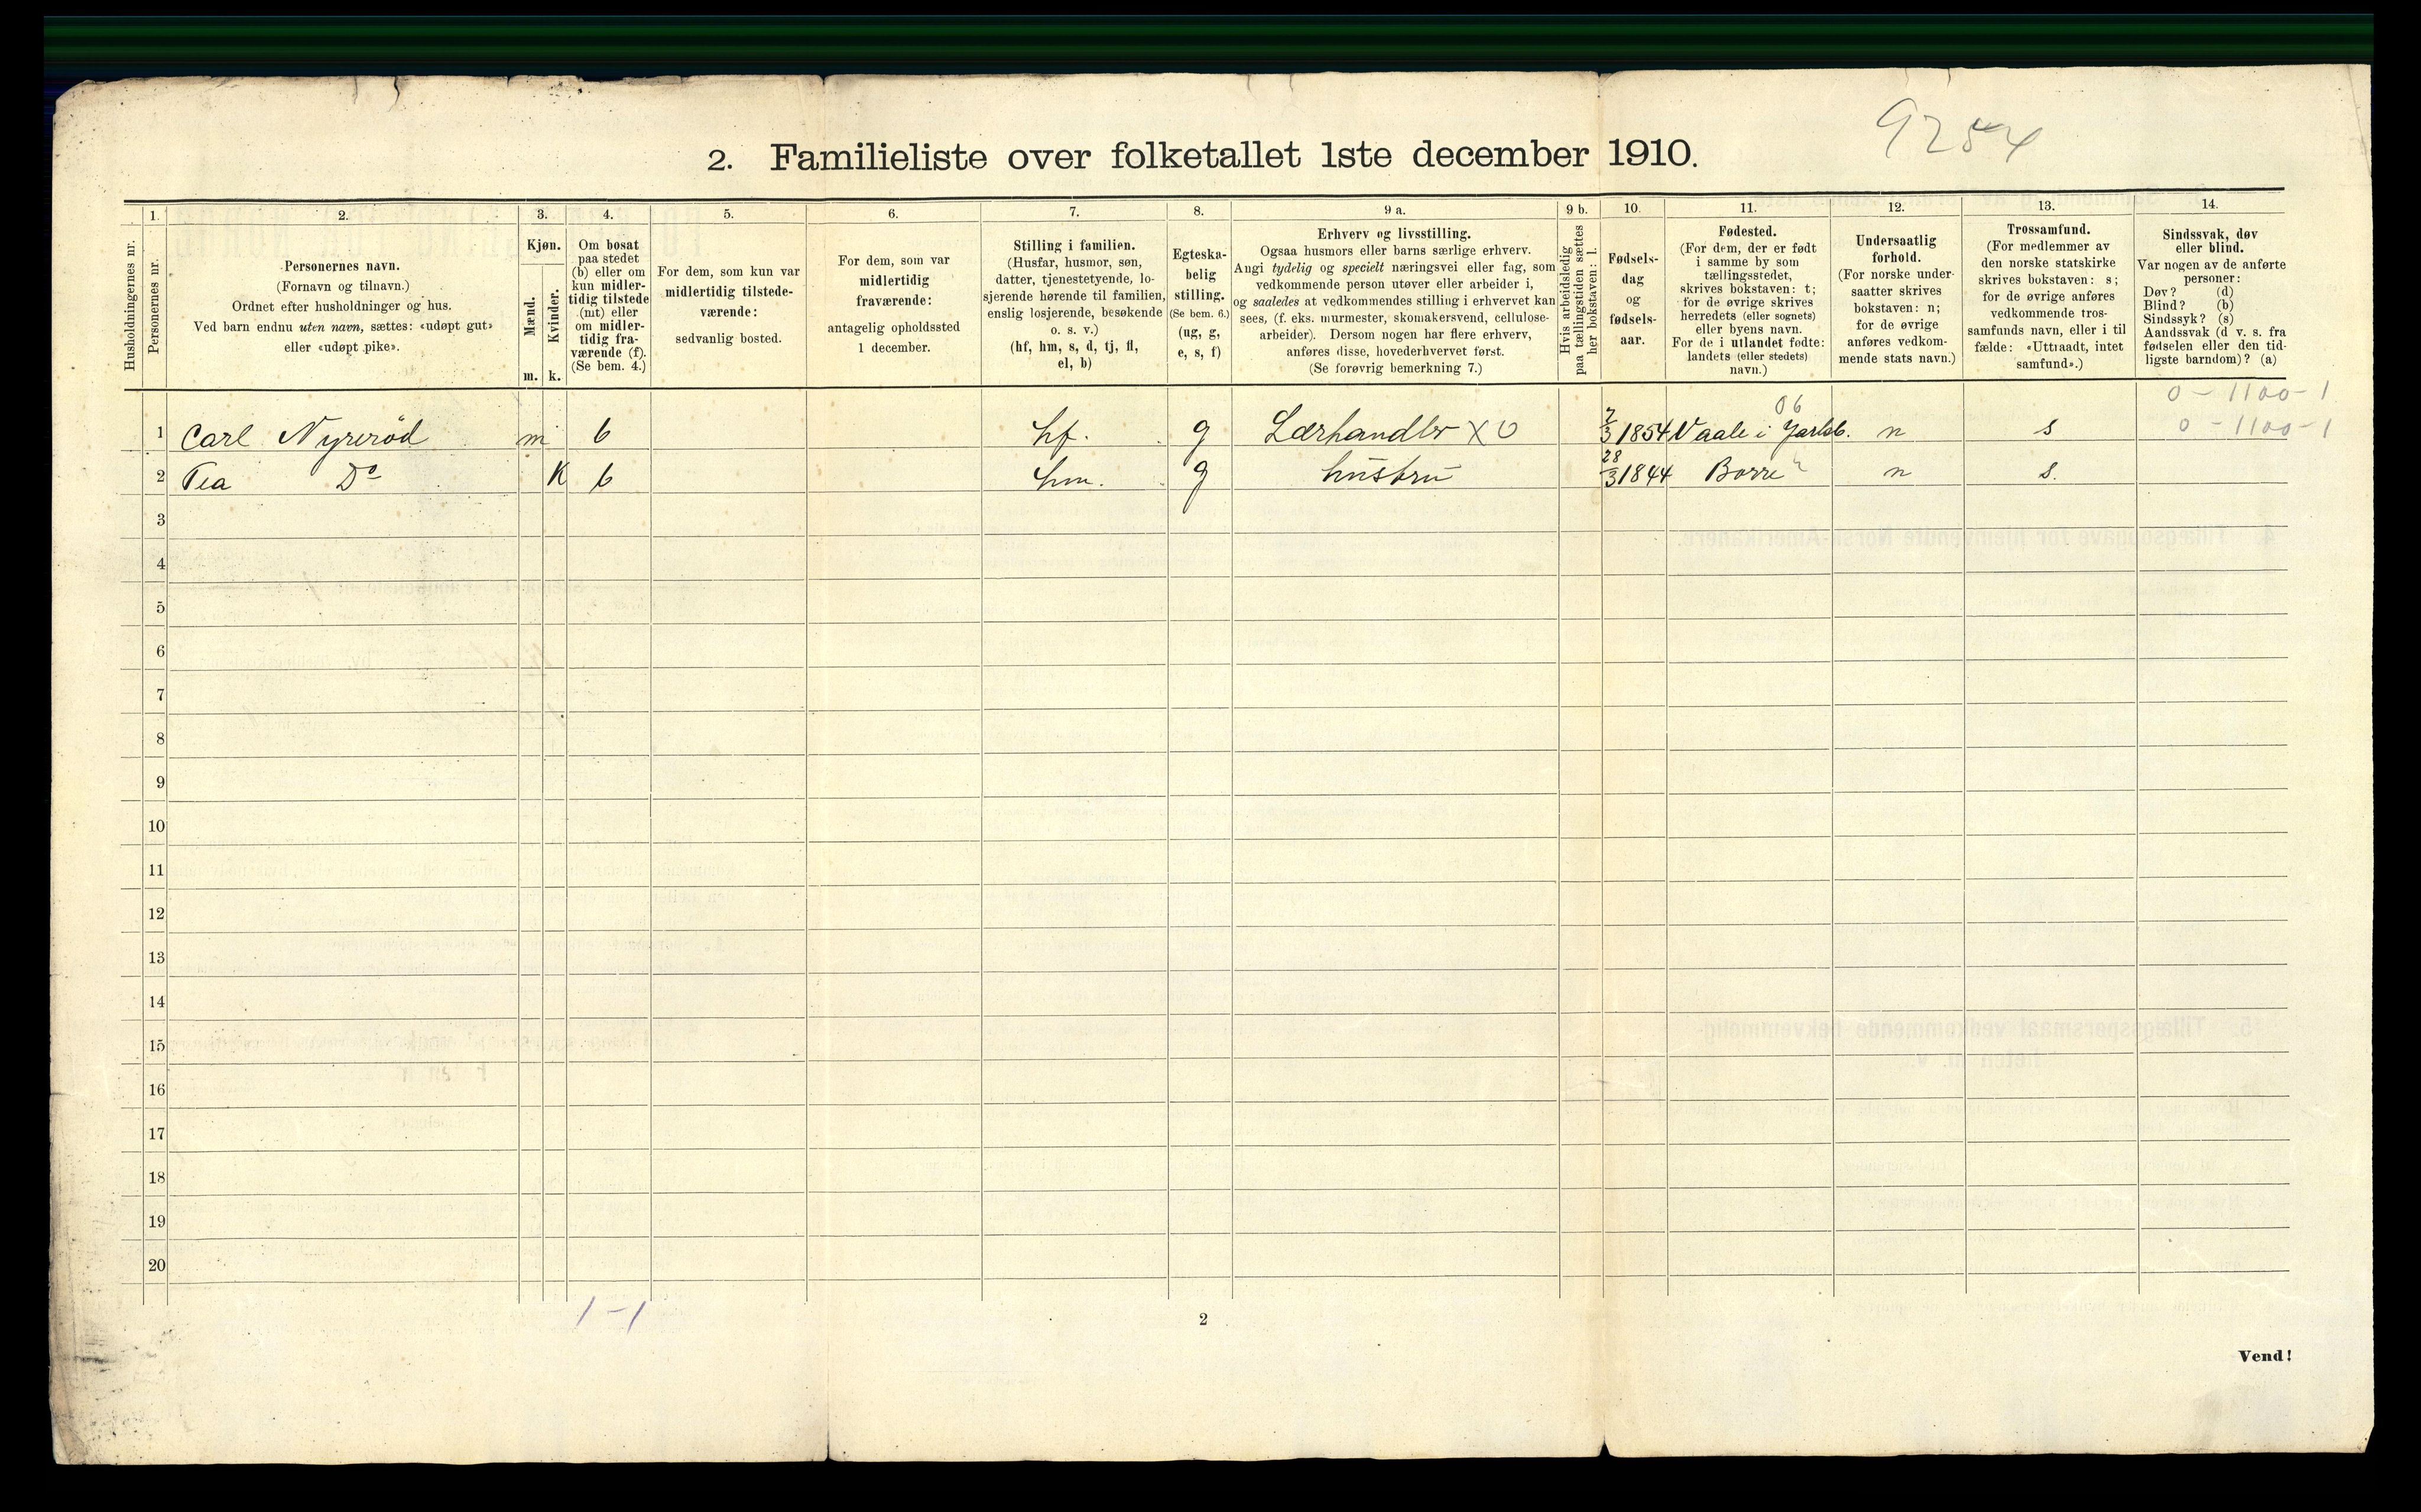 9254
2. Familieliste over folketallet 1ste december 1910.
Husholdningernes nr.
1.
Personernes nr.
2.
Personernes navn.
(Fornavn og tilnavn.)
Ordnet efter husholdninger og hus.
Ved barn endnu uten navn, sættes: «udøpt gut»
eller «udøpt pike».
3.
Kjøn.
Mænd.
Kvinder.
m. k.
4.
Om bosat
paa stedet
(b) eller om
kun midler-
tidig tilstede
(mt) eller
om midler-
tidig fra-
værende (f).
(Se bem. 4.)
5.
For dem, som kun var
midlertidig tilstede-
værende:
sedvanlig bosted.
6.
For dem, som var
midlertidig
fraværende:
antagelig opholdssted
1 december.
7.
Stilling i familien.
(Husfar, husmor, søn,
datter, tjenestetyende, lo-
sjerende hørende til familien,
enslig losjerende, besøkende
o. s. v.)
(hf, hm, s, d, tj, fl,
el, b)
8.
Egteska-
belig
stilling.
(Se bem. 6.)
(ug, g,
e, s, f)
9 a.
Erhverv og livsstilling.
Ogsaa husmors eller barns særlige erhverv.
Angi tydelig og specielt næringsvei eller fag, som
vedkommende person utøver eller arbeider i,
og saaledes at vedkommendes stilling i erhvervet kan
sees, (f. eks. murmester, skomakersvend, cellulose-
arbeider). Dersom nogen har flere erhverv,
anføres disse, hovederhvervet først.
(Se forøvrig bemerkning 7.)
9 b.
Hvis arbeidsledig
paa tællingstiden sættes
her bokstaven: l.
10.
Fødsels-
dag
og
fødsels-
aar.
11.
Fødested.
(For dem, der er født
i samme by som
tællingsstedet,
skrives bokstaven: t;
for de øvrige skrives
herredets (eller sognets)
eller byens navn.
For de i utlandet fødte:
landets (eller stedets)
navn.)
12.
Undersaatlig
forhold.
(For norske under-
saatter skrives
bokstaven: n;
for de øvrige
anføres vedkom-
mende stats navn.)
13.
Trossamfund.
(For medlemmer av
den norske statskirke
skrives bokstaven: s;
for de øvrige anføres
vedkommende tros-
samfunds navn, eller i til
fælde: «Uttraadt, intet
samfund».)
14.
Sindssvak, døv
eller blind.
Var nogen av de anførte
personer:
Døv? (d)
Blind? (b)
Sindssyk? (s)
Aandssvak (d v. s. fra
fødselen eller den tid-
ligste barndom)? (a)
0 - 1100 - 1
06
1 Carl Nyrerød m b hf. g Lærhandler X O 7/3 1854 Vaale i Jarlsb. n s 0 - 1100 - 1
2 Tea Do K b hm. g hustru 28/3 1844 Borre n s.
3
4
5
6
7
8
9
10
11
12
13
14
15
16
17
18
19
20
1 - 1
2
Vend!